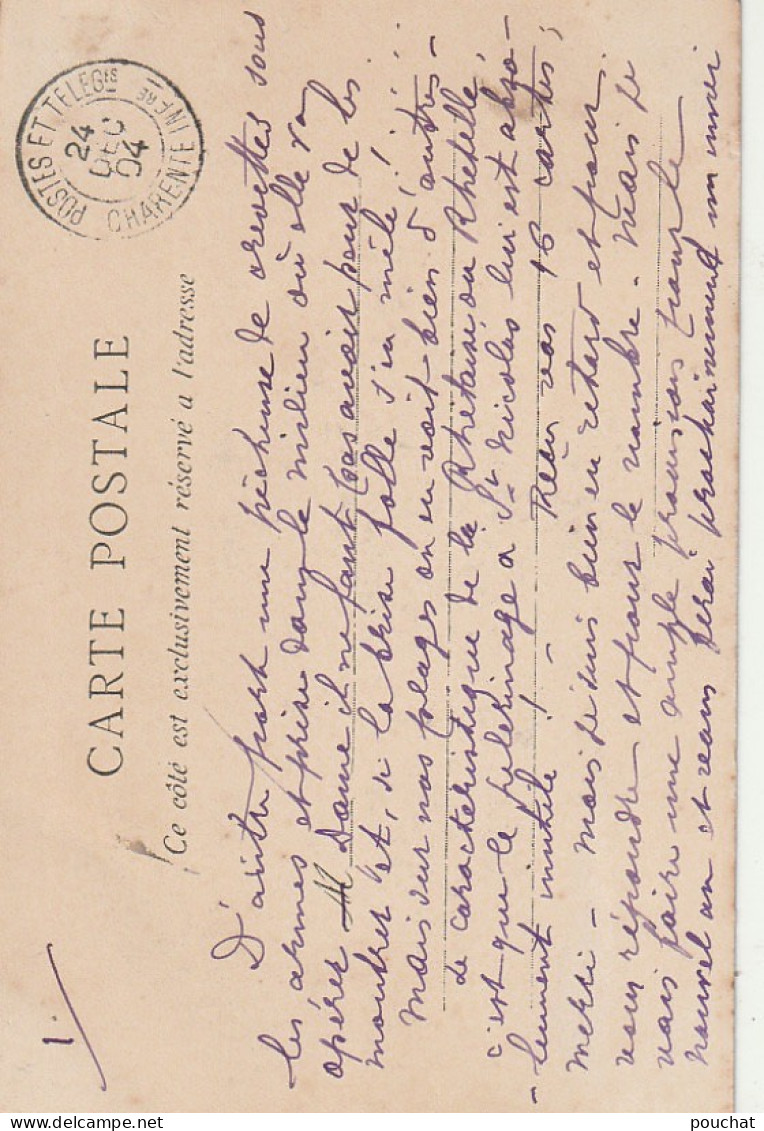 1.
POSTES ET TELEGts
24
DEC
04
CHARENTE INFRE
CARTE POSTALE
Ce côté est exclusivement réservé a l'adresse
D'autre part une pêcheuse de crevettes sous
les armes et prise dans le milieu où elle va
opérer Dame il ne faut pas avoir peur de les
montrer et, si la brise folle s'en mêle! ...
mais sur nos plages on en voit bien d'autres -
Le caractéristique de la Rhétaise ou Rhetelle,
c'est que le pélerinage a St Nicolas lui est abso-
- lument inutile! - Reçu vos 16 cartes;
merci - mais je suis bien en retard et pour
vous répondre et pour le nombre - Mais je
vais faire une ample provision pour le
nouvel an et vous ferai prochainement un envoi
pouchat